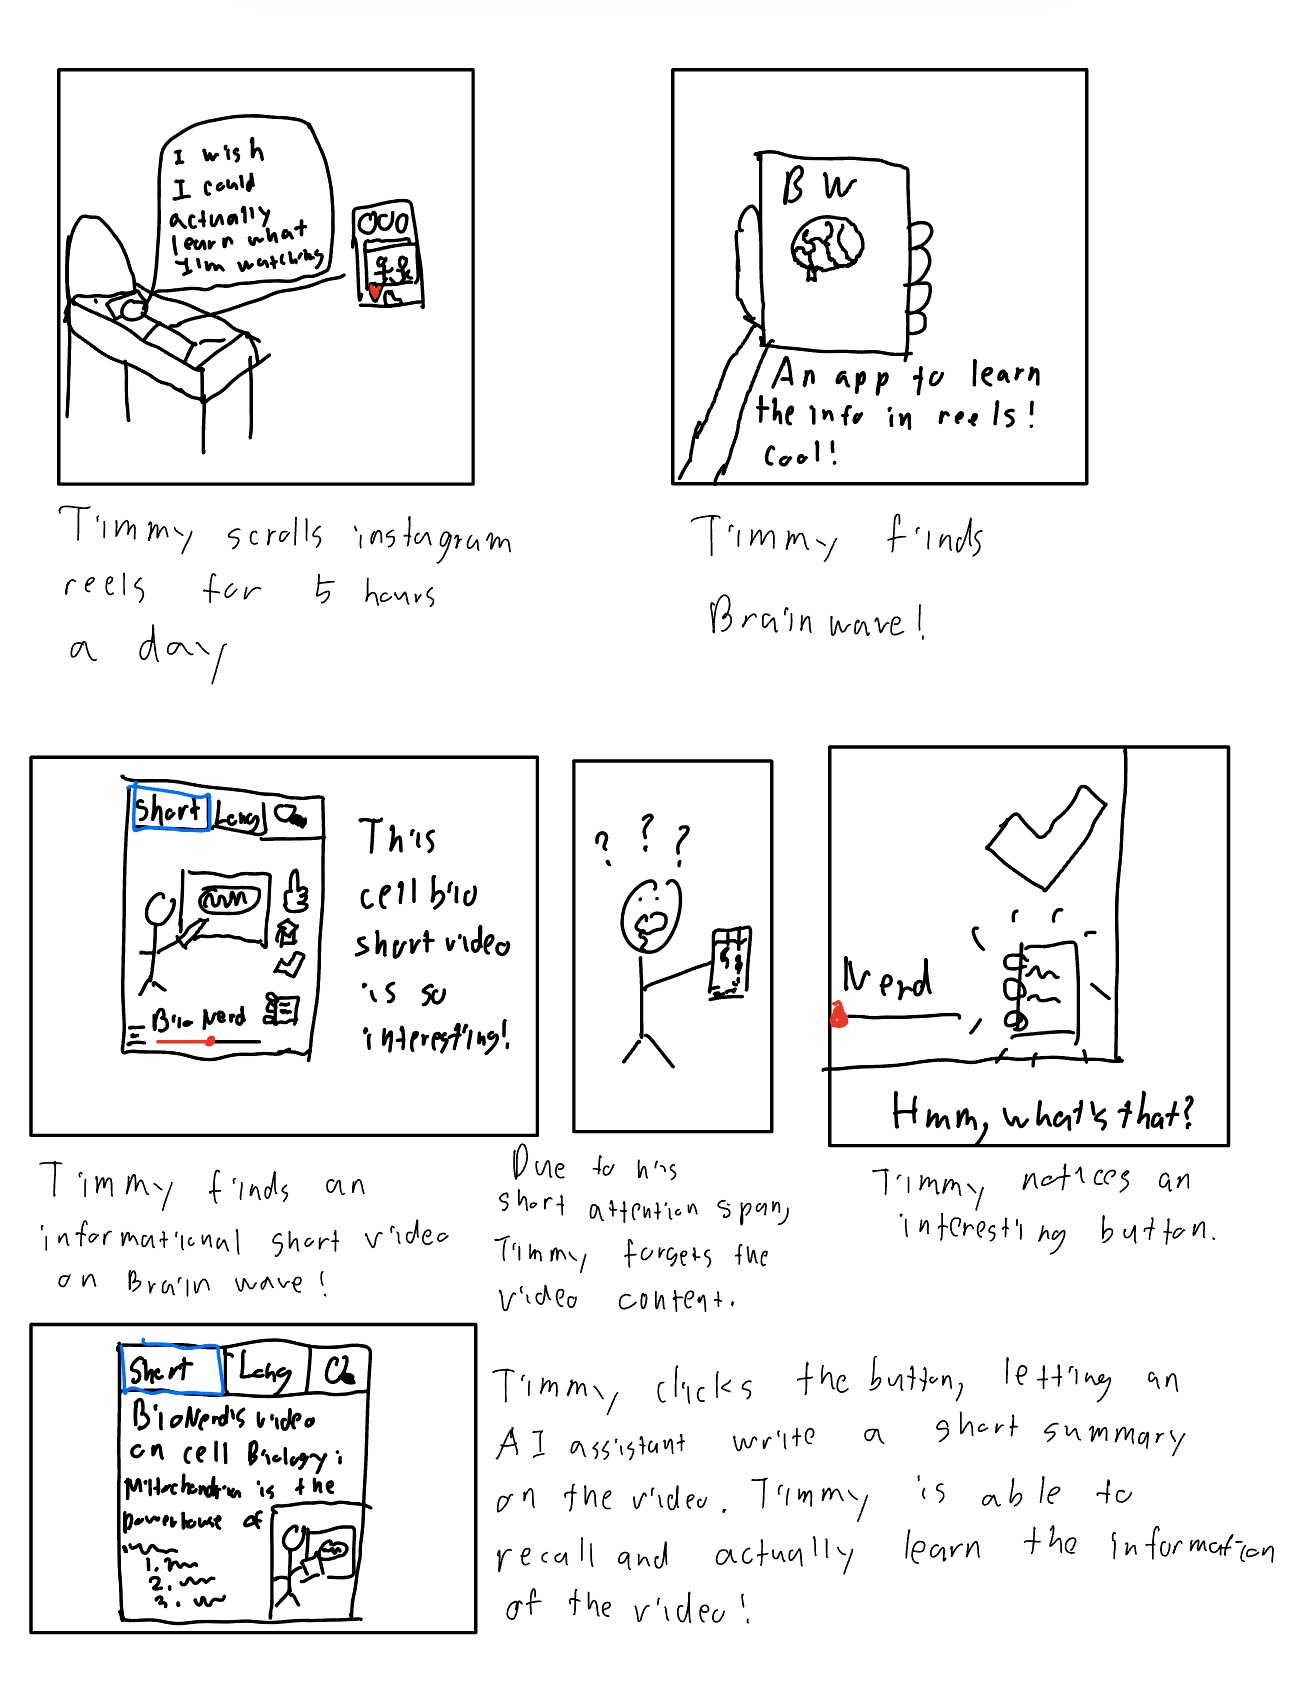 I wish
I could
actually
learn what
I'm watching
Timmy scrolls instagram
reels for 5 hours
a day
BW
An app to learn
the info in reels!
Cool!
Timmy finds
Brainwave!
Short Long
Bio Nerd
This
cell bio
short video
is so
interesting!
Timmy finds an
informational short video
on Brain wave!
? ? ?
Due to his
short attention span,
Timmy forgets the
video content.
Nerd
Hmm, what's that?
Timmy notices an
interesting button.
Short Long
BioNerd's video
on cell Biology:
Mitochondria is the
powerhouse of
1.
2.
3.
Timmy clicks the button, letting an
AI assistant write a short summary
on the video. Timmy is able to
recall and actually learn the information
of the video!